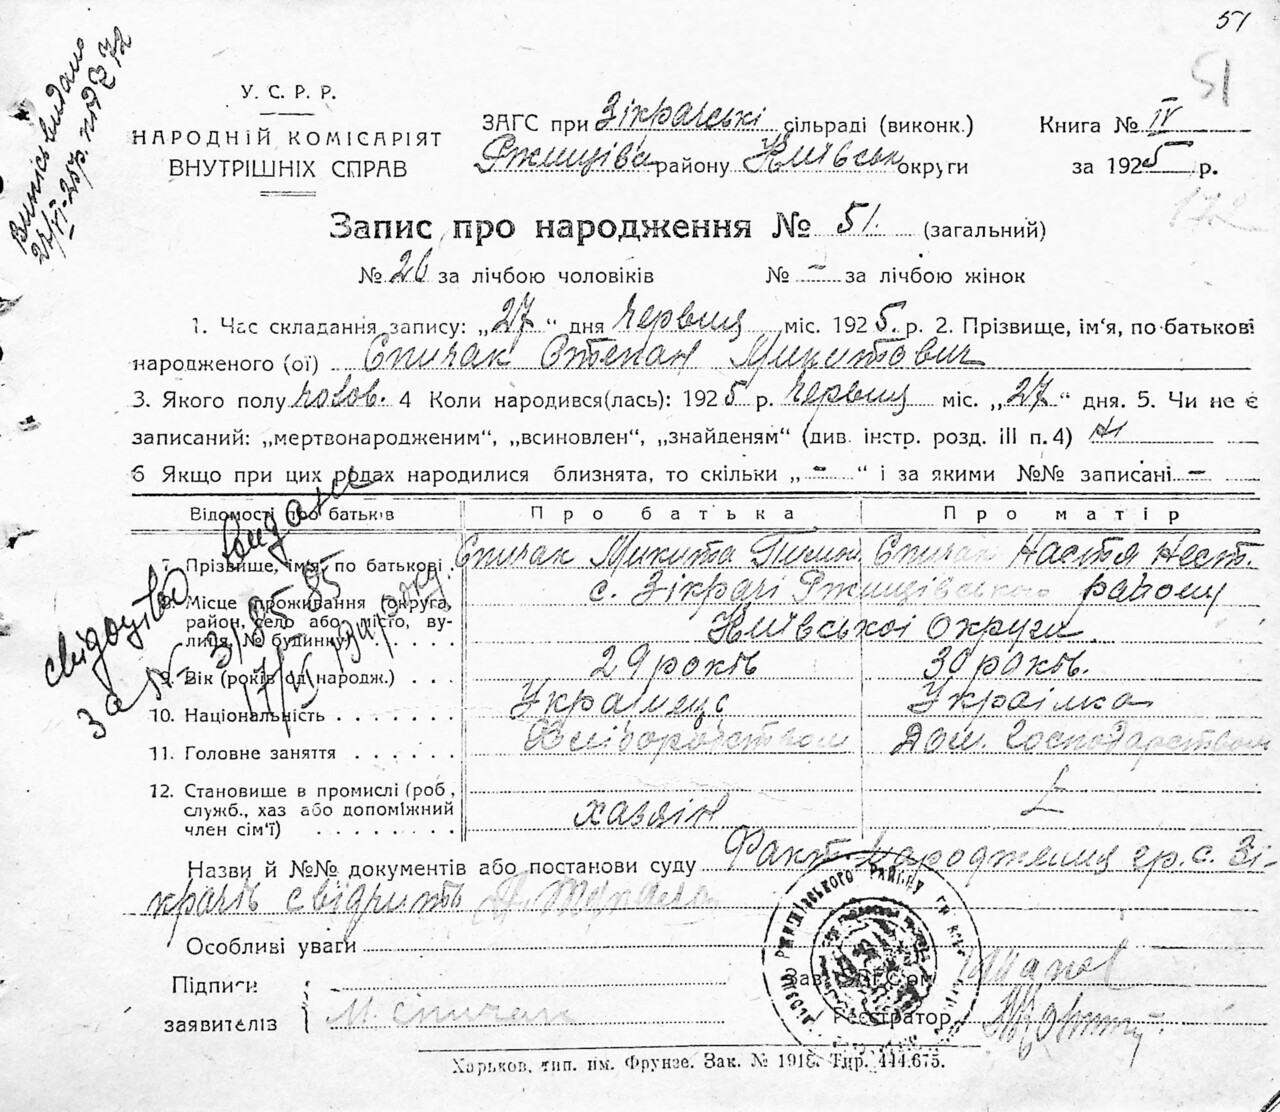 51
51
Випись видано
27/VI-25р. под № 72
У. С. Р. Р.
НАРОДНІЙ КОМІСАРІЯТ
ВНУТРІШНІХ СПРАВ
ЗАГС при Зікрачські сільраді (виконк.)
Ржищіва району Київськ округи
Книга № IV
за 1925 р.
172
Запис про народження № 51. (загальний)
№ 26 за лічбою чоловіків № – за лічбою жінок
1. Час складання запису: „27“ дня Червня міс. 1925. р. 2. Прізвище, ім‘я, по-батькові
народженого (ої) Спичак Степан Микитович
3. Якого полу чолов. 4 Коли народився(лась): 1925 р. Червня міс. „27“ дня. 5. Чи не є
записаний: „мертвонародженим“, „всиновлен“, „знайденям“ (див. інстр. розд. III п. 4) Ні
6 Якщо при цих родах народилися близнята, то скільки „–“ і за якими №№ записані –
Відомості про батьків Про батька Про матір
7. Прізвище, ім‘я, по батькові Спичак Микита Спичак Настя Нест.
8. Місце проживання (округа, район, село або місто, вулиця, № будинку)
с. Зікрачі Ржищівського району
Київської округи
9. Вік (років од народж.) 29 років 30 років.
10. Національність Українець Українка
11. Головне заняття Хліборобством Дом. Господарством
12. Становище в промислі (роб., служб., хаз або допоміжний член сім‘ї) хазяїн
свідоцтво видане
за №
Назви й №№ документів або постанови суду Факт народження гр. с. Зі-
крачь свідчить
Особливі уваги
Підписи
заявителів М. Спичак
Зав. ЗАГС‘ом
Реєстратор
РЖИЩІВСЬКОГО РАЙОНУ
Харьков, тип. им. Фрунзе. Зак. № 1918. Тир. 444.675.